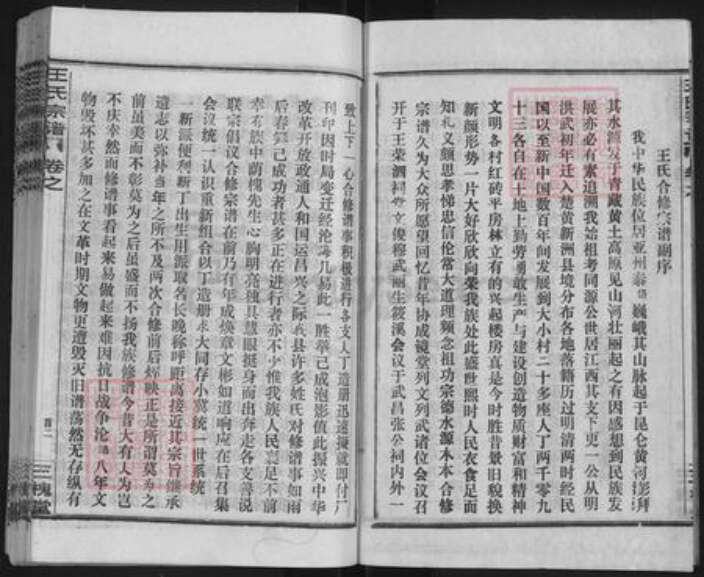 王氏合修宗谱副序
我中华民族位居亚州 巍峨其山脉起于昆仑黄河澎拜
其水源发于青藏黄土高原见山河壮丽起之有因感想到民族发
展亦必有素追溯我始祖考同源公世居江西其支下更一公从明
洪武初年迁入楚黄新洲县境分布各地落籍历过明清两时经民
国以至新中国数百年间发展到大小村二十多座人丁两千零九
十三各自在土地上勤劳勇敢生产与建设创造物质财富和精神
文明各村红砖平房林立有的兴起楼房真是今时胜昔景旧貌换
新颜形势一片大好欣欣向荣我族处此盛世熙时人民衣食足而
知礼义颜思孝悌忠信伦常大道理频念祖功宗德水源木本合修
宗谱久为大众所愿望回忆昔年协成镜堂列文列武诸位会议召
开于王荣泗祠 文俊穆武丽生筱溪会议于武昌张公祠内外一
致上下一心合修谱事积极进行各支人丁造册迅速掷就即付
刊印因时局变迁经沦 几易此一胜举已成泡影值此振兴中华
改革开放政通人和国运昌兴之际我县许多姓氏对修谱事如雨
后春笋已成功者甚多正在进行者亦不少惟我族人民 足不前
幸有族中荫槐先生心胸明亮独具慧眼挺身而出奔走各支善说
联宗倡议合修宗谱在前乃有年成焕章文彬如道响应在后召集
会议统一认识重新组合以丁造册求大同存小冀统一世系统
一新派便利新丁出生用派取名长晚称呼距离接近其宗旨继承
遗志以弥补当年之所不及两次合修前后辉映正是所谓莫为之
前虽美而不彰莫为之后虽盛而不扬我族修谱今昔大有人为岂
不庆幸然而修谱事看起来易做起来难因抗日战争沦 八年文
物毁坏甚多加之在文革时期文物更遭毁灭旧谱荡然无存纵有
王氏宗谱 卷之
首一
三槐堂